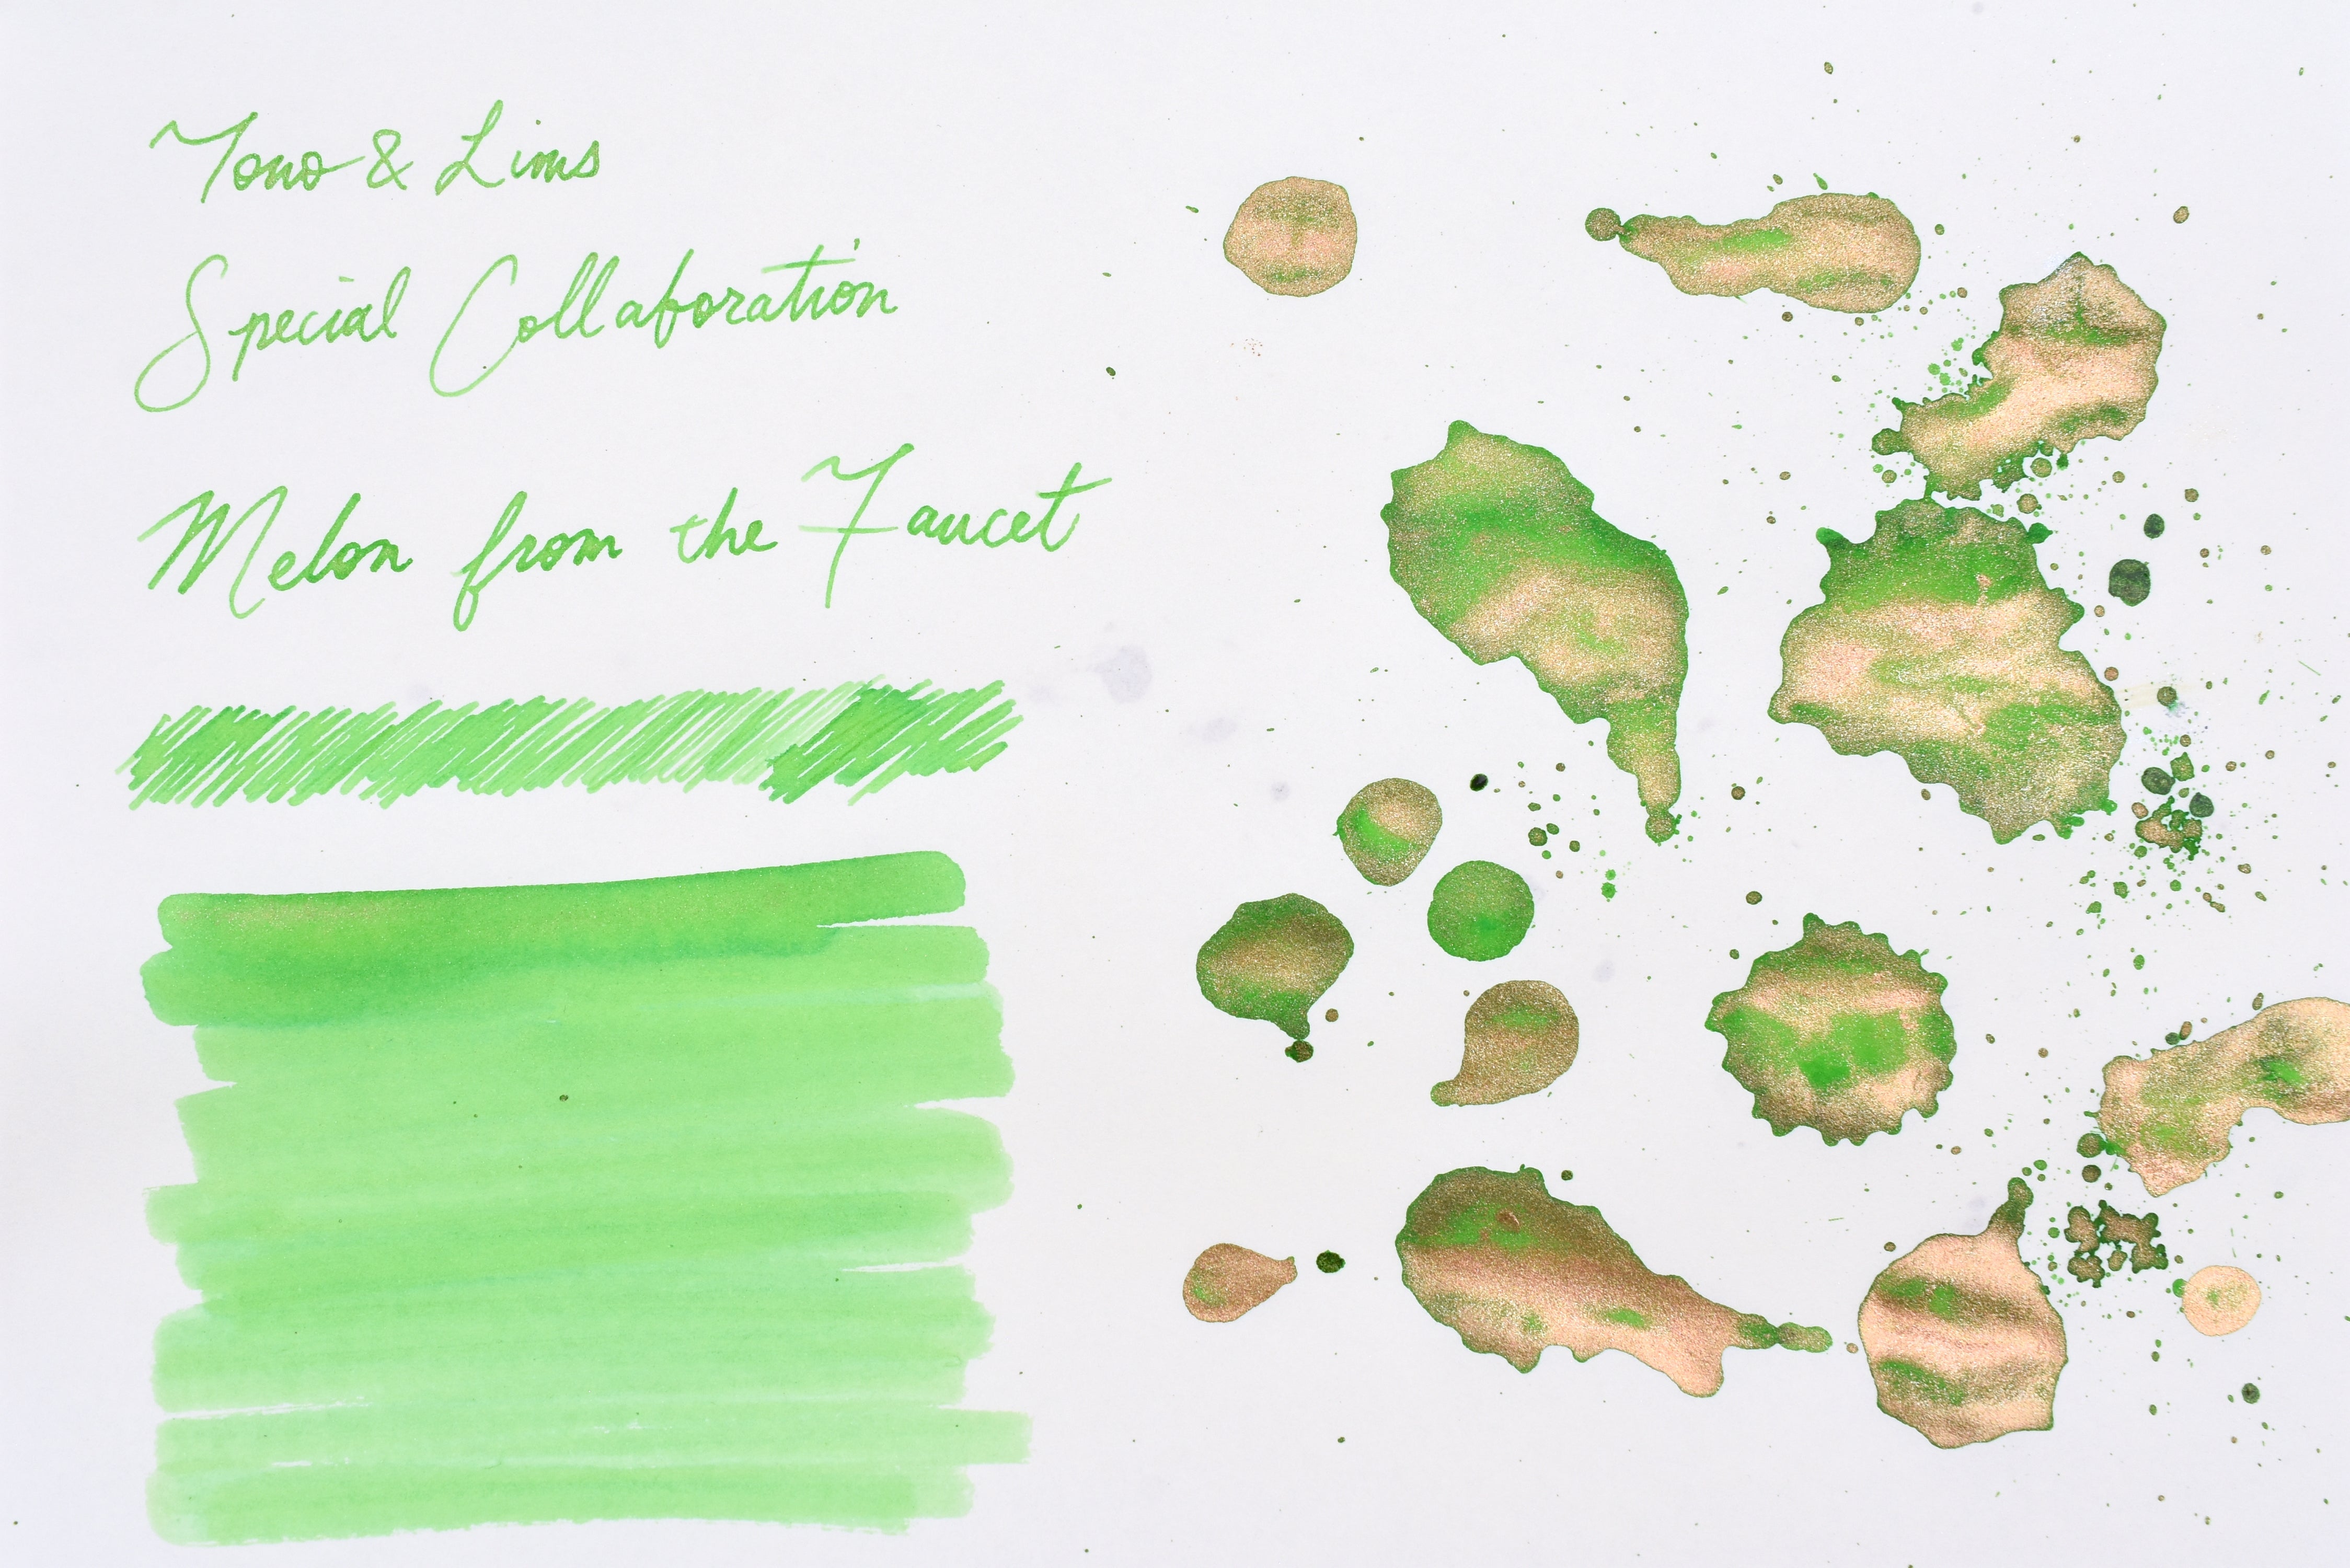 Tono & Lims
Special Collaboration
Melon from the Faucet